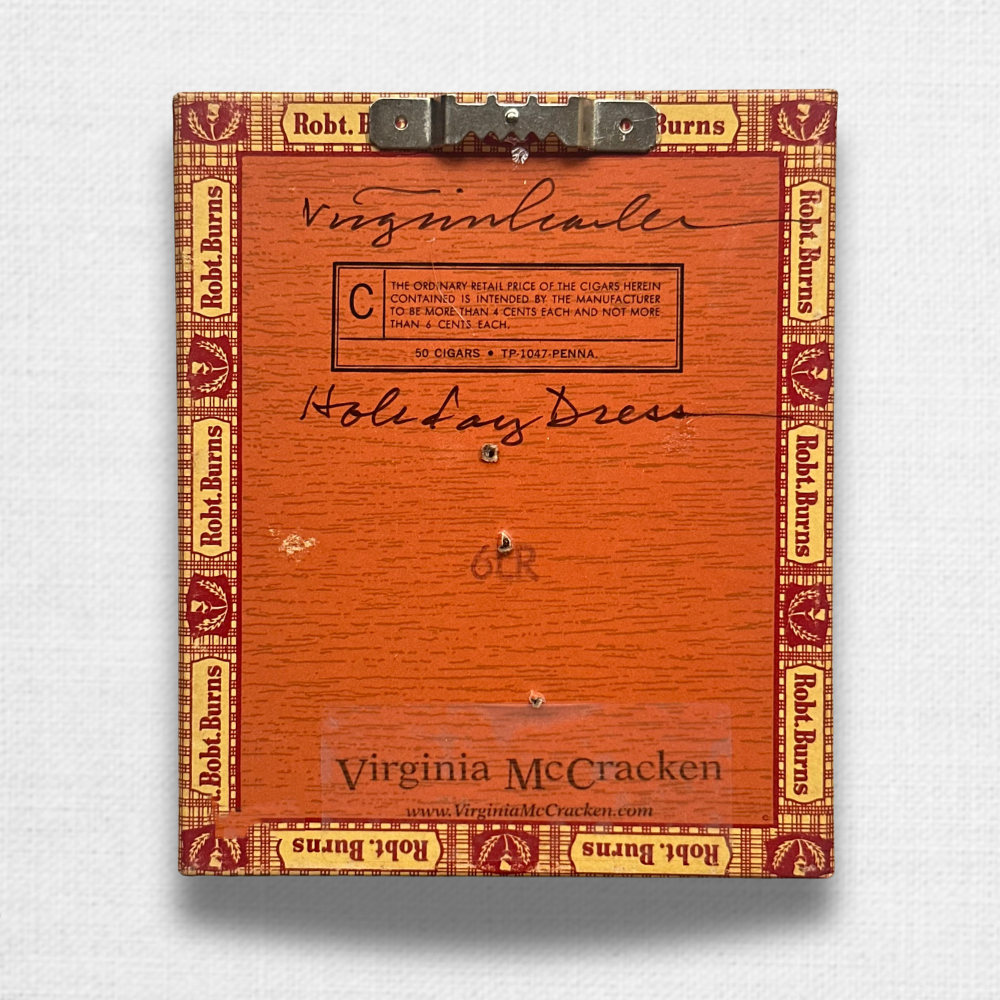 Robt. Burns
Robt.Burns
Robt.Burns
C
THE ORDINARY RETAIL PRICE OF THE CIGARS HEREIN
CONTAINED IS INTENDED BY THE MANUFACTURER
TO BE MORE THAN 4 CENTS EACH AND NOT MORE
THAN 6 CENTS EACH.
50 CIGARS • TP-1047-PENNA.
Holiday Dress
Robt.Burns
Robt.Burns
Robt.Burns
Robt.Burns
Virginia McCracken
www.VirginiaMcCracken.com
Robt.Burns
Robt.Burns